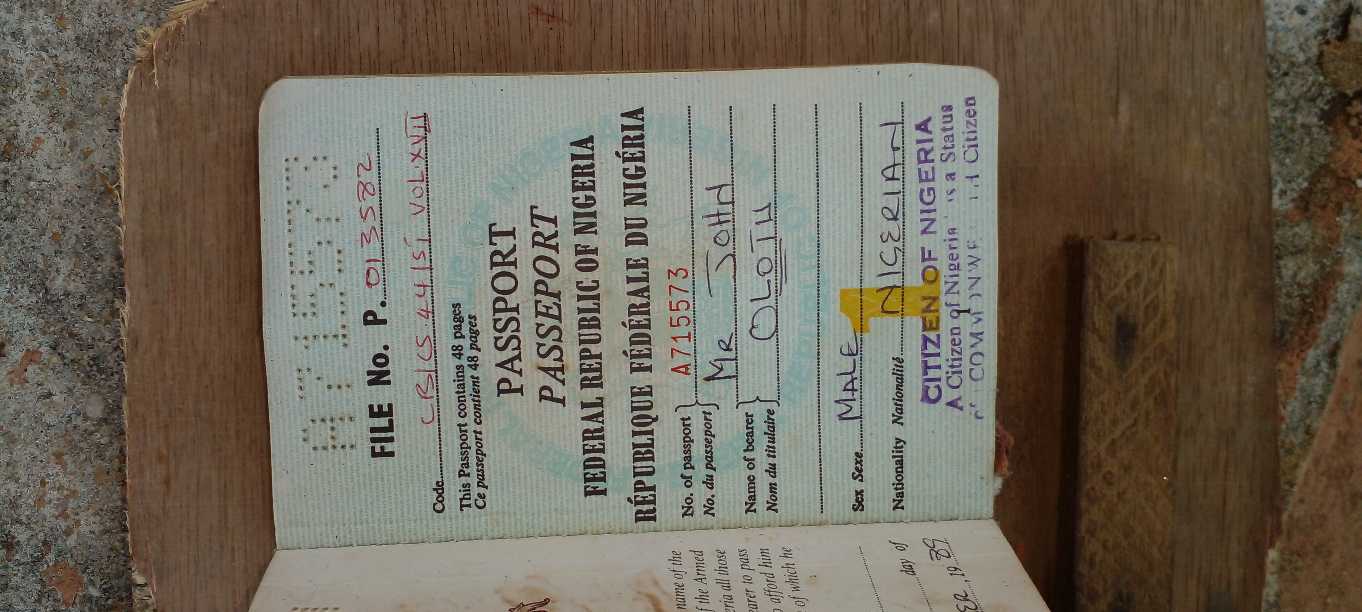 name of the
f the Armed
eria all those
earer to pass
o afford him
of which he
day of
ER, 19 89
A715573
FILE No. P. 013582
Code CB/CS.44/S1 VOL.XVII
This Passport contains 48 pages
Ce passeport contient 48 pages
PASSPORT
PASSEPORT
FEDERAL REPUBLIC OF NIGERIA
RÉPUBLIQUE FÉDÉRALE DU NIGÉRIA
No. of passport A715573
No. du passeport
MR JOHN
Name of bearer
Nom du titulaire OLOTU
Sex Sexe MALE
1
Nationality Nationalité NIGERIAN
CITIZEN OF NIGERIA
A Citizen of Nigeria is a Status
of COMMONWE Citizen
1